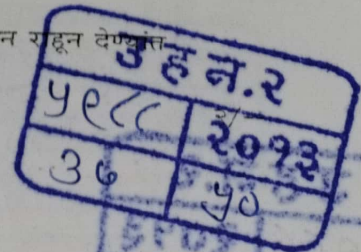 न राहून देण्यांत
उ ह न. २
५९८८ २०१३
३७ ५०